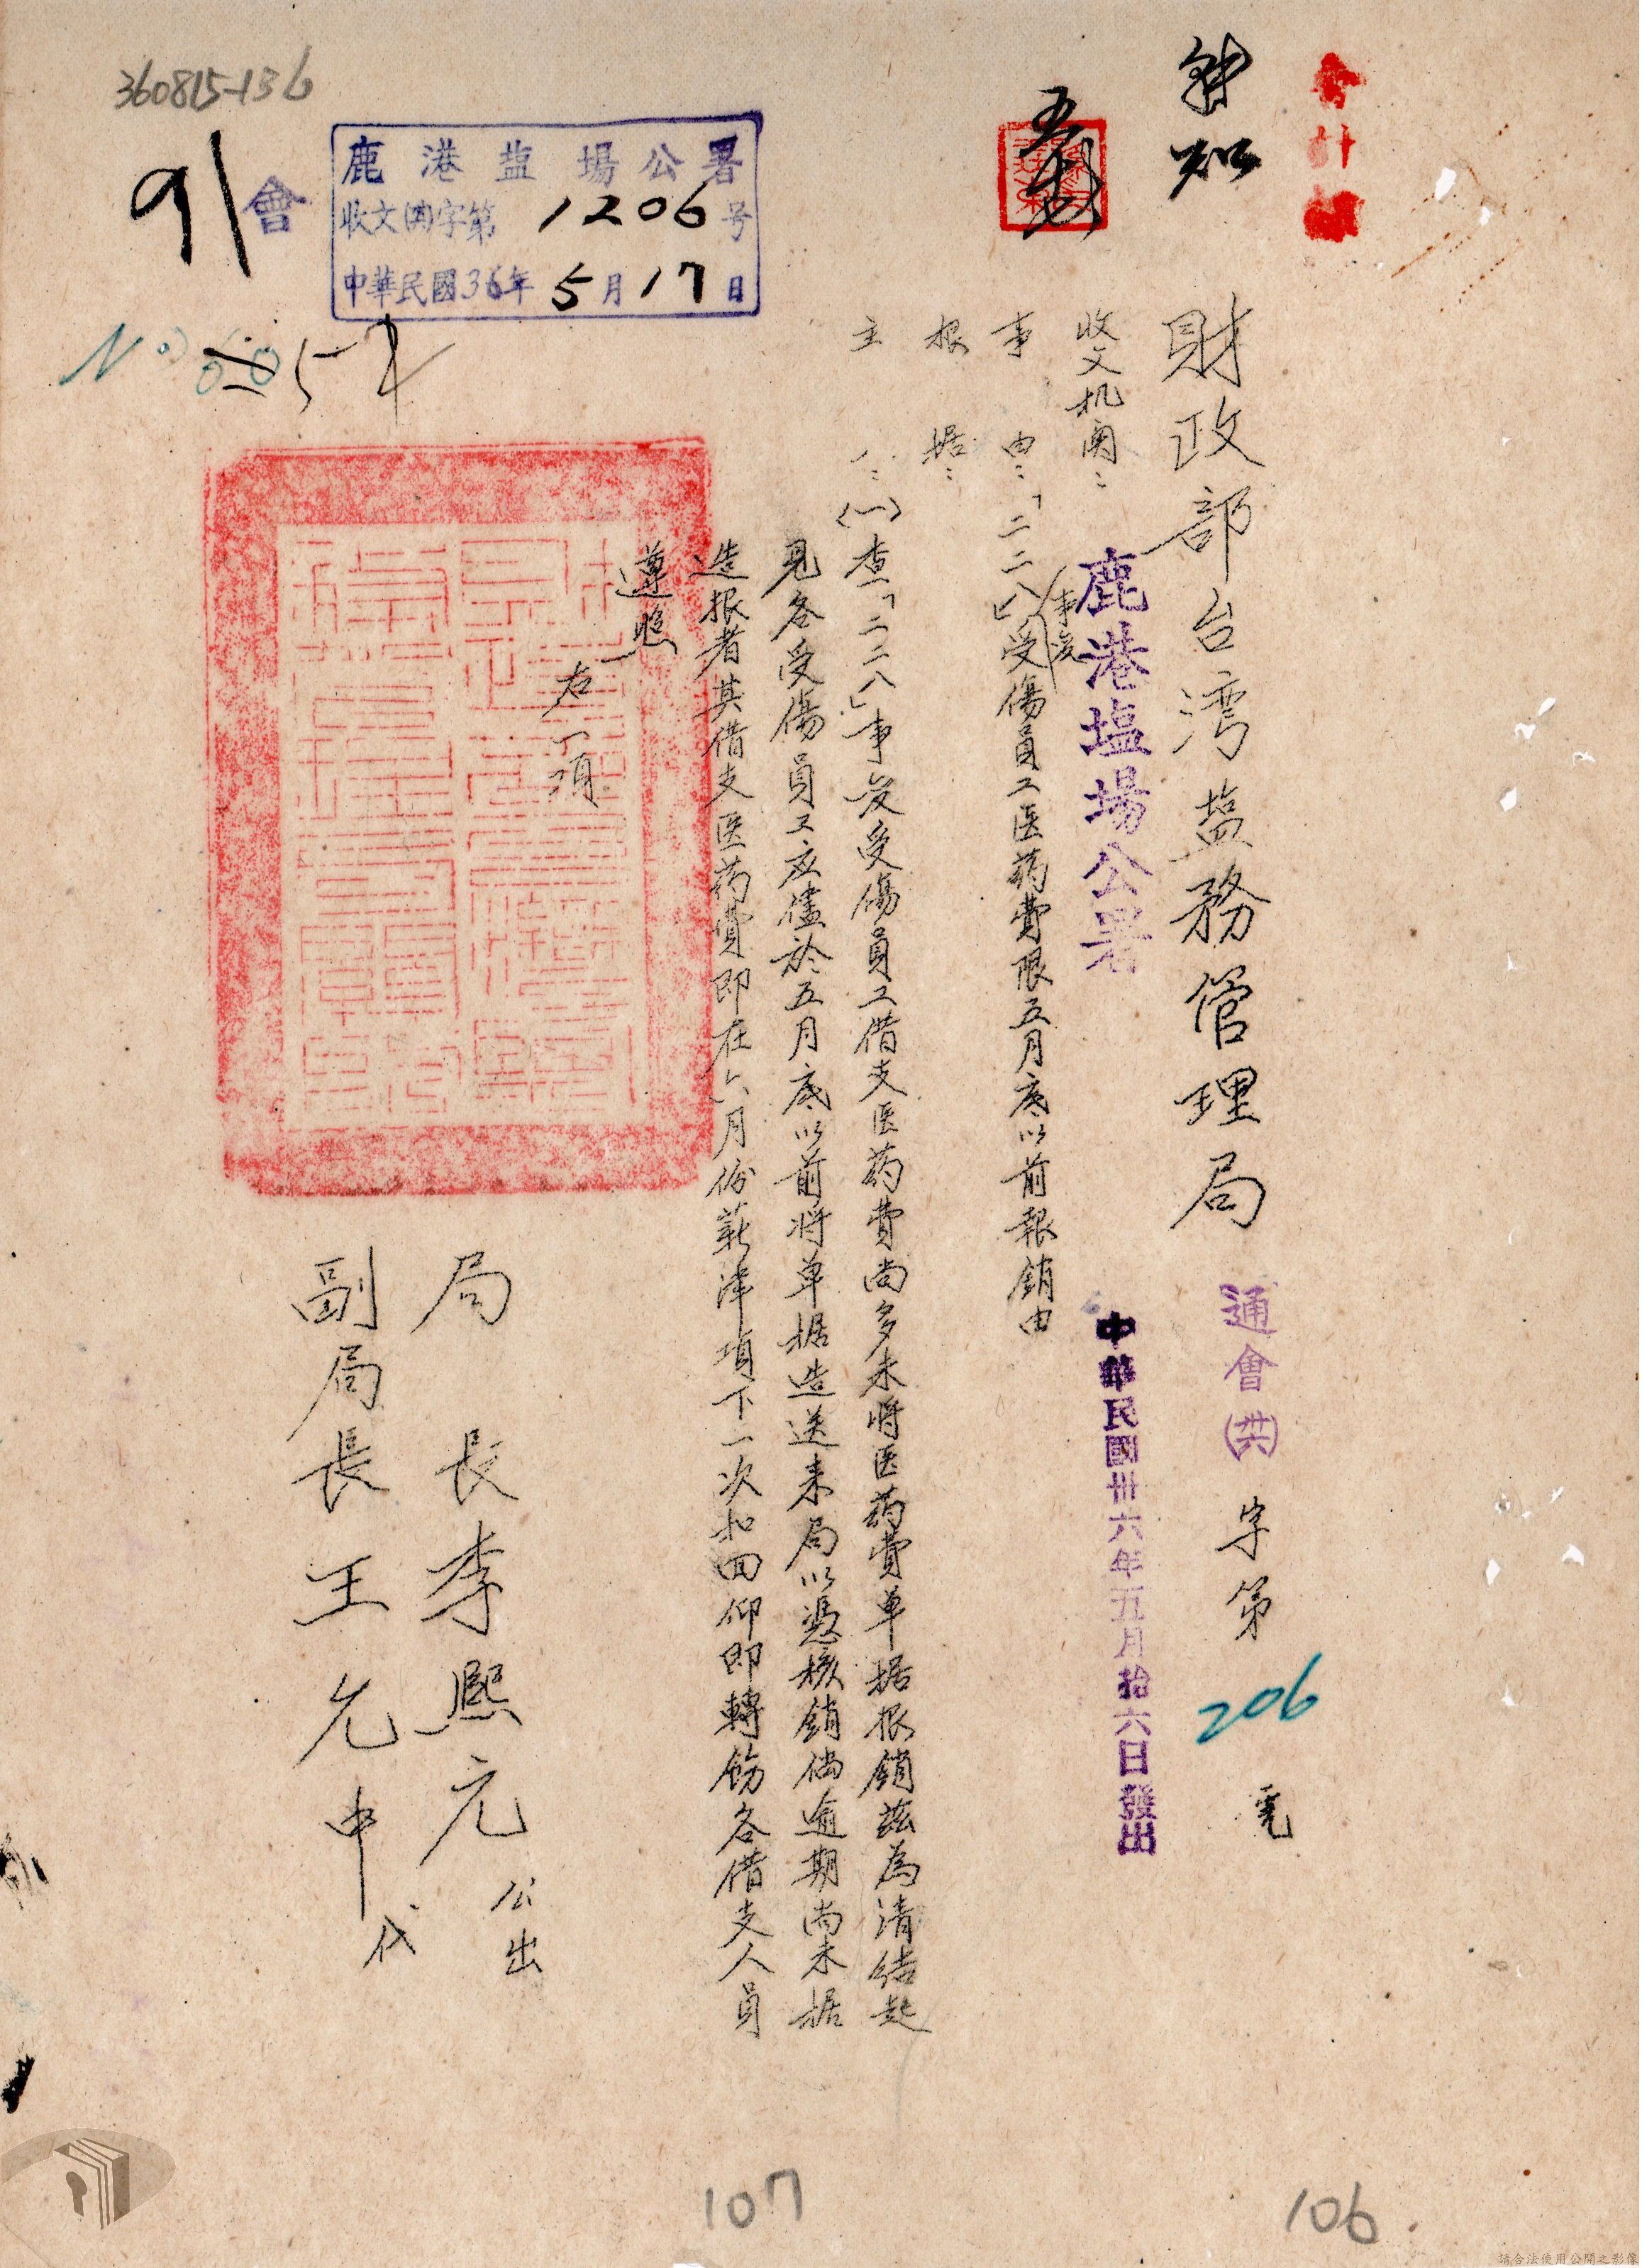 會計
財政部台湾塩務管理局
通會(共)字第206電
收文机関：鹿港塩場公署
中華民國卅六年五月拾六日發出
事由：「二二八」事変受傷員工医药費限五月底以前報銷由
根据：
主
(一)查「二二八」事变受傷員工借支医药費尚多未將医药費单据报銷茲為清結起
見各受傷員工应儘於五月底以前將单据造送来局以憑核銷倘逾期尚未据
造报者其借支医药費即在六月份薪津項下一次扣回仰即轉飭各借支人員
遵照
右一項
局長李熙元公出
副局長王允中代
鹿港塩場公署
收文(共)字第1206号
中華民國36年5月17日
會
91
360815-136
107
106
請合法使用公開之影像